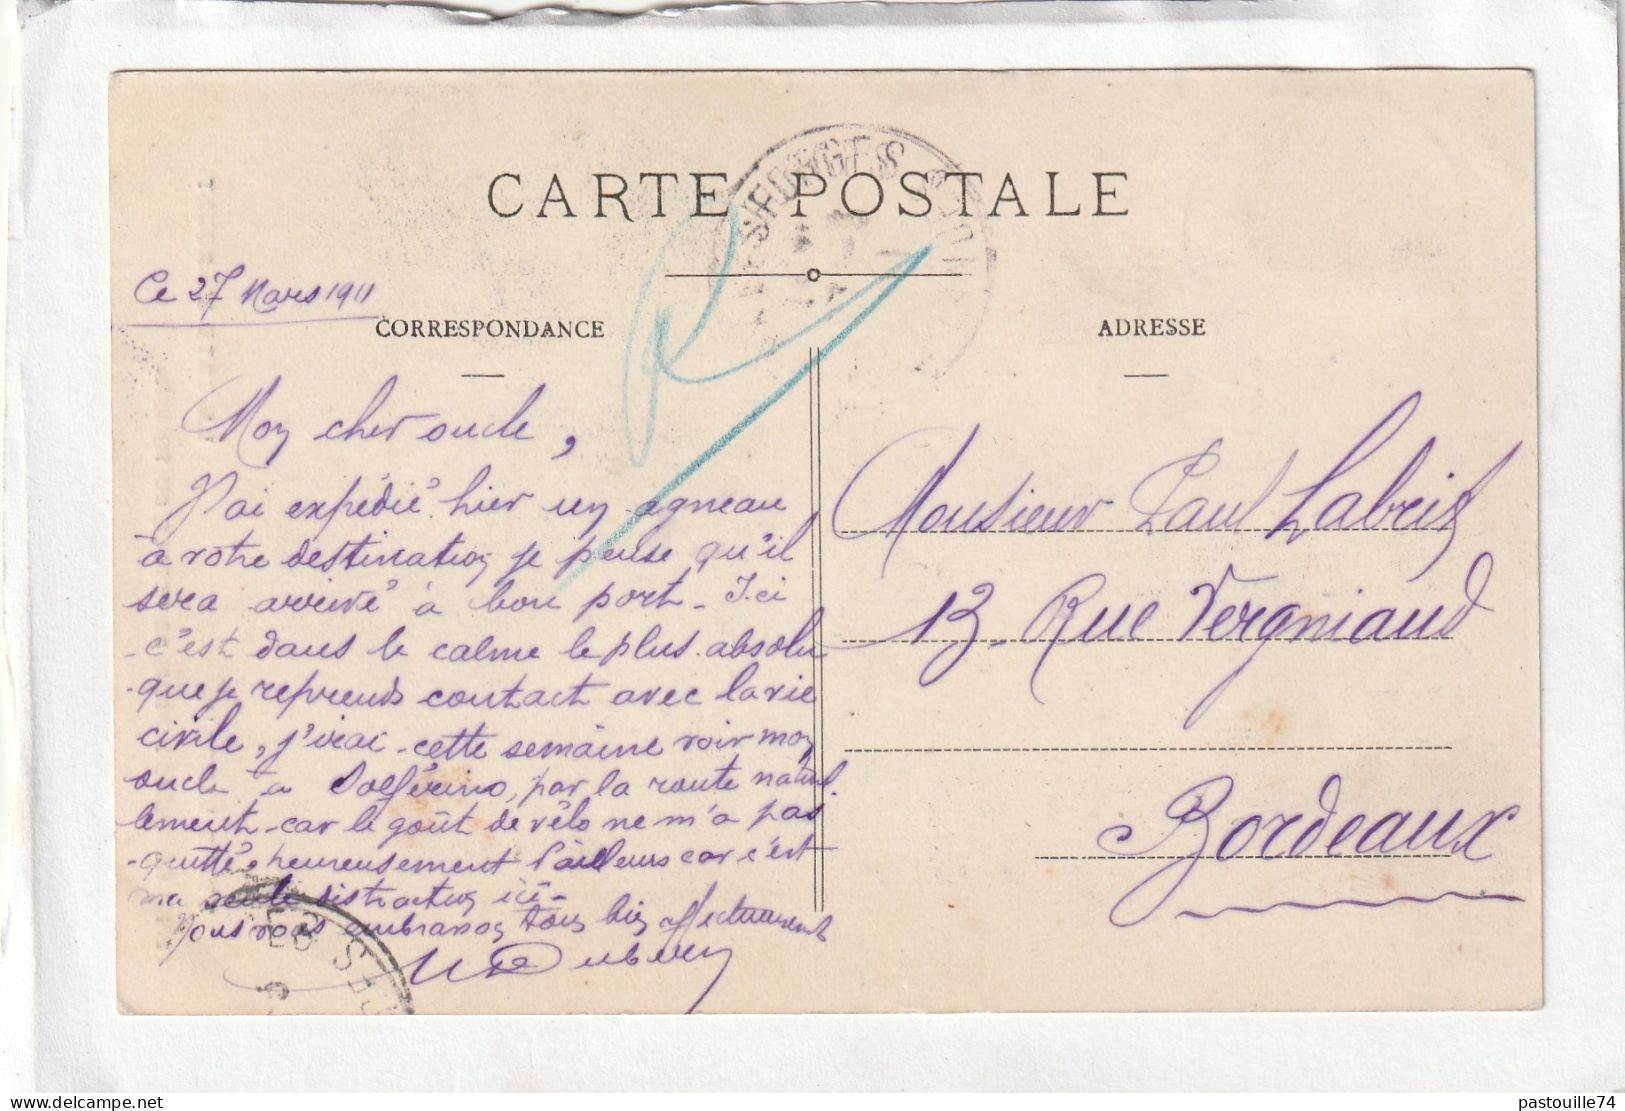 CARTE POSTALE
Ce 27 Mars 1911
CORRESPONDANCE
Mon cher oncle,
J'ai expédié hier un agneau
à votre destination je pense qu'il
sera arrivé à bon port - Ici
c'est dans le calme le plus absolu
que je reprends contact avec la vie
civile, j'irai cette semaine voir mon
oncle à Solférino, par la route naturel
lement car le goût de vélo ne m'a pas
quitté, heureusement d'ailleurs car c'est
ma seule distraction ici -
Nous vous embrassons tous bien affectueusement
ADRESSE
Monsieur Paul
13 - Rue Vergniaud
Bordeaux
pastouille74